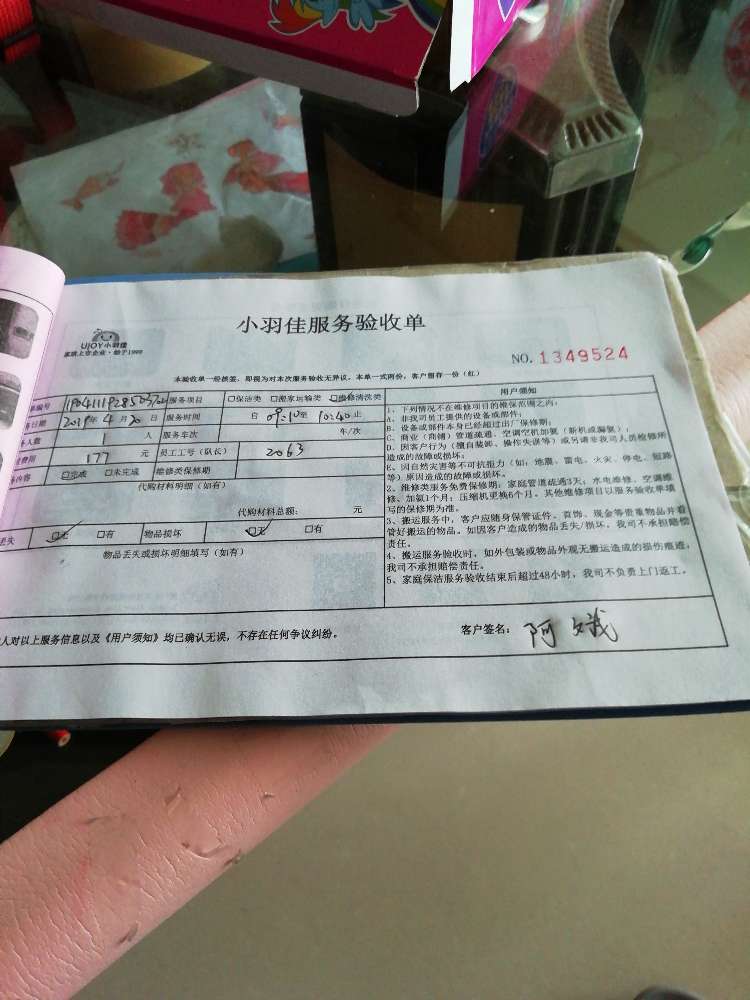 小羽佳服务验收单
UJOY小羽佳
家政上市企业·始于1999
NO. 1349524
本验收单一经签签，即视为对本次服务验收无异议，本单一式两份，客户留存一份（红）
单编号 服务项目 □保洁类 □搬家运输类 □维修清洗类
务日期 2021年4月20日 服务时间 自 09:10至 10:40止
务人数 1 人 服务车次 车/次
费用 177 元 员工工号（队长） 2063
务内容 □完成 □未完成 维修类保修期
代购材料明细（如有）
代购材料总额： 元
丢失 □无 □有 物品损坏 □无 □有
物品丢失或损坏明细填写（如有）
用户须知
1、下列情况不在维修项目的维保范围之内：
A、非我司员工提供的设备或部件；
B、设备或部件本身已经超过出厂保修期；
C、商业（商铺）管道疏通、空调空机加氨（新机或漏氨）；
D、因客户行为（擅自装卸、操作失误等）或另请非我司人员检修所
造成的故障或损坏；
E、因自然灾害等不可抗力（如：地震、雷电、火灾、停电、短路
等）原因造成的故障或损坏。
2、维修类服务免费保修期：家庭管道疏通3天；水电维修、空调维
修、加氨1个月；压缩机更换6个月。其他维修项目以服务验收单填
写的保修期为准。
3、搬运服务中，客户应随身保管证件、首饰、现金等贵重物品并看
管好搬运的物品。如因客户造成的物品丢失/损坏，我司不承担赔偿
责任。
4、搬运服务验收时，如外包装或物品外观无搬运造成的损伤痕迹，
我司不承担赔偿责任。
5、家庭保洁服务验收结束后超过48小时，我司不负责上门返工。
人对以上服务信息以及《用户须知》均已确认无误，不存在任何争议纠纷。
客户签名： 阿娥